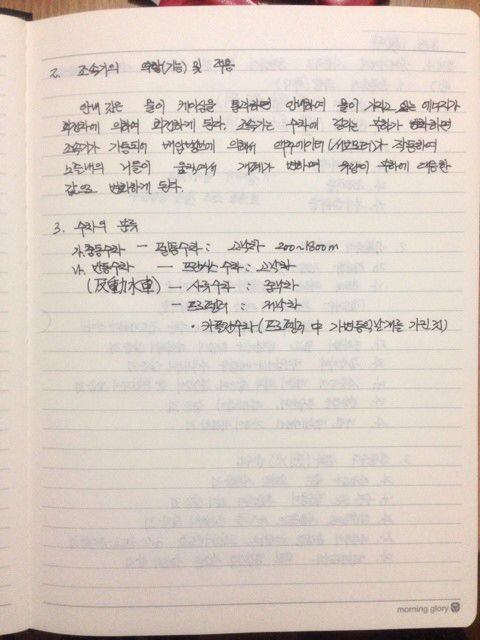 2. 조속기의 역할(기능) 및 적용
안내 깃은 물이 케이싱을 통과하면 안내하여 물이 가지고 있는 에너지가
회전차에 의하여 회전하게 된다. 조속기는 수차에 걸리는 부하가 변화하면
조속기가 가동되어 배압밸브에 의해서 액추에이터(서보모터)가 작동하여
노즐내의 니들이 움직여서 개폐가 변하며 유량이 부하에 대응한
값으로 변화하게 된다.
3. 수차의 분류
가. 충동수차 - 펠톤수차 : 고낙차 200~1800m
나. 반동수차 - 프란시스 수차 : 고낙차
(反動水車) - 사류수차 : 중낙차
- 프로펠러 : 저낙차
· 카플란수차 (프로펠러 中 가변동익날개를 가진 것)
morning glory